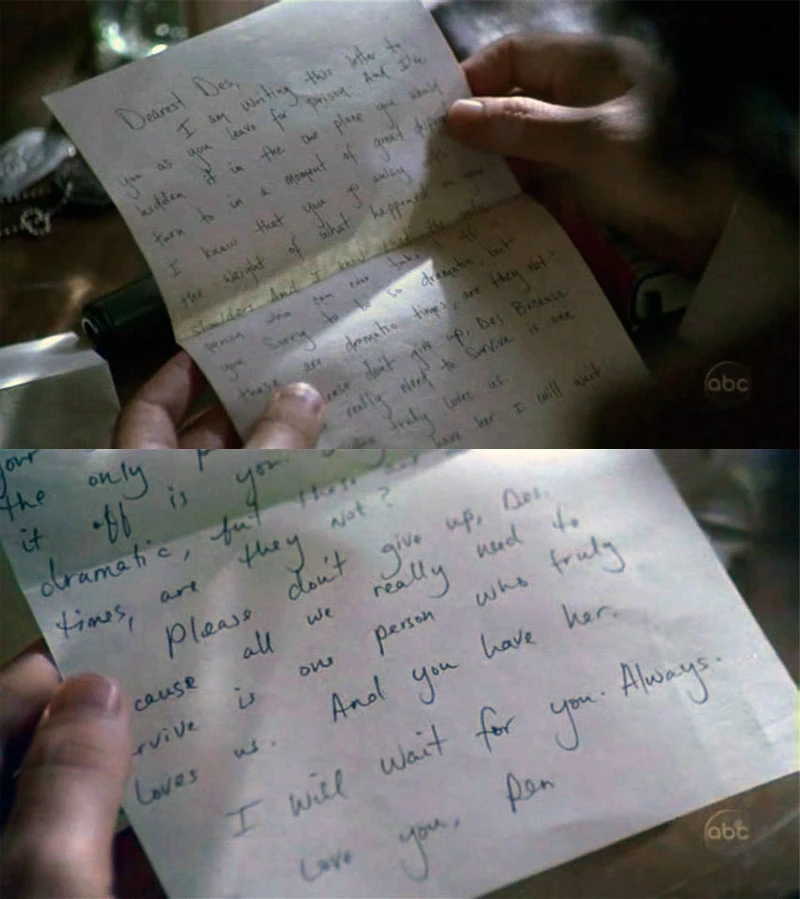 Dearest Des,
I am writing this letter to
you as you leave for prison. And I've
hidden it in the one place you would
turn to in a moment of great
I know that you go away
the weight of what happened on your
shoulders. And I know that the only
person who can ever take it off is
you. Sorry to be so dramatic, but
these are dramatic times, are they not
ease don't give up, Des. Because
really need to survive is one
who truly loves us.
have her. I will wait
abc
your
the only
it off is you.
dramatic, but these
times, are they not?
Please don't give up, Des.
cause all we really need to
rvive is one person who truly
loves us. And you have her.
I will wait for you. Always.
Love you, Pen
abc